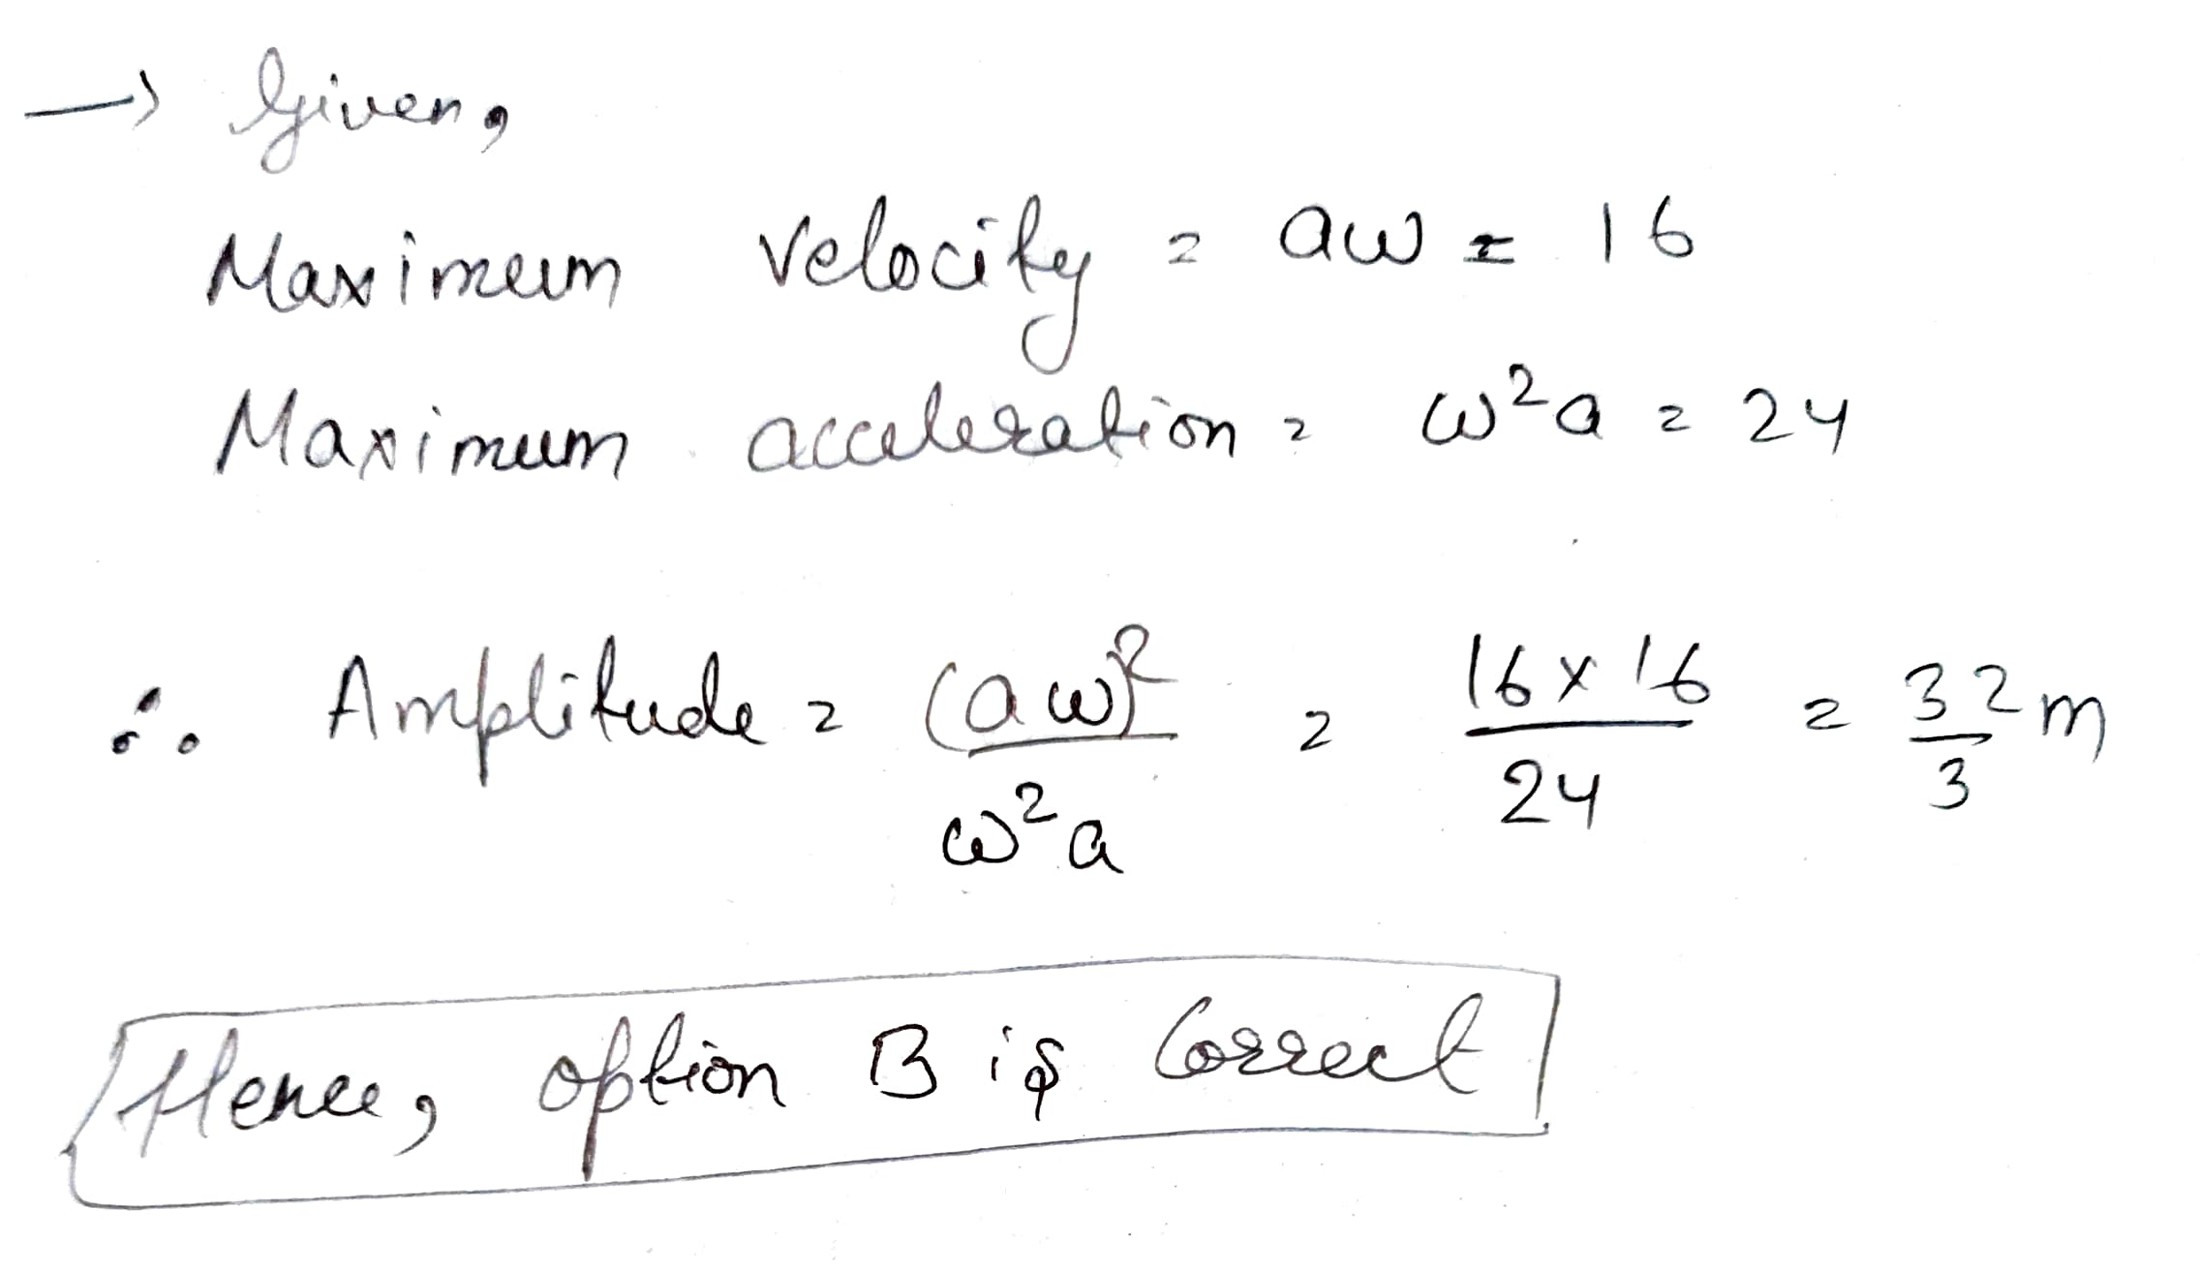 → Given,
Maximum velocity = aω = 16
Maximum acceleration = ω²a = 24
∴ Amplitude = (aω)²/ω²a = 16×16/24 = 32/3 m
Hence, option B is Correct